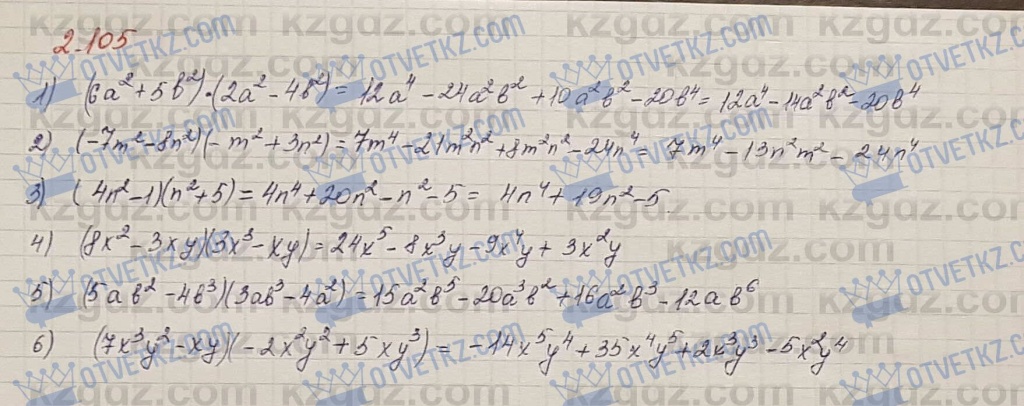 2.105
1) (6a²+5b²)·(2a²-4b²)=12a⁴-24a²b²+10a²b²-20b⁴=12a⁴-14a²b²-20b⁴
2) (-7m²-8n²)(-m²+3n²)=7m⁴-21m²n²+8m²n²-24n⁴=7m⁴-13n²m²-24n⁴
3) (4n²-1)(n²+5)=4n⁴+20n²-n²-5=4n⁴+19n²-5
4) (8x²-3xy)(3x³-xy)=24x⁵-8x³y-9x⁴y+3x²y
5) (5ab²-4b³)(3ab³-4a²)=15a²b⁵-20a³b²+16a²b³-12ab⁶
6) (7x³y²-xy)(-2x²y²+5xy³)=-14x⁵y⁴+35x⁴y⁵+2x³y³-5x²y⁴
kzgdz.com
OTVETKZ.COM